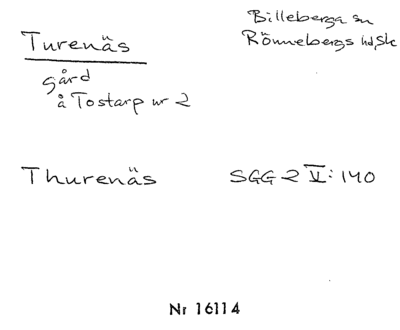 Turenäs
Billeberga sn
Rönnebergs hd, Sk
gård
å Tostarp nr 2
Thurenäs
SGG 2 V: 140
Nr 16114